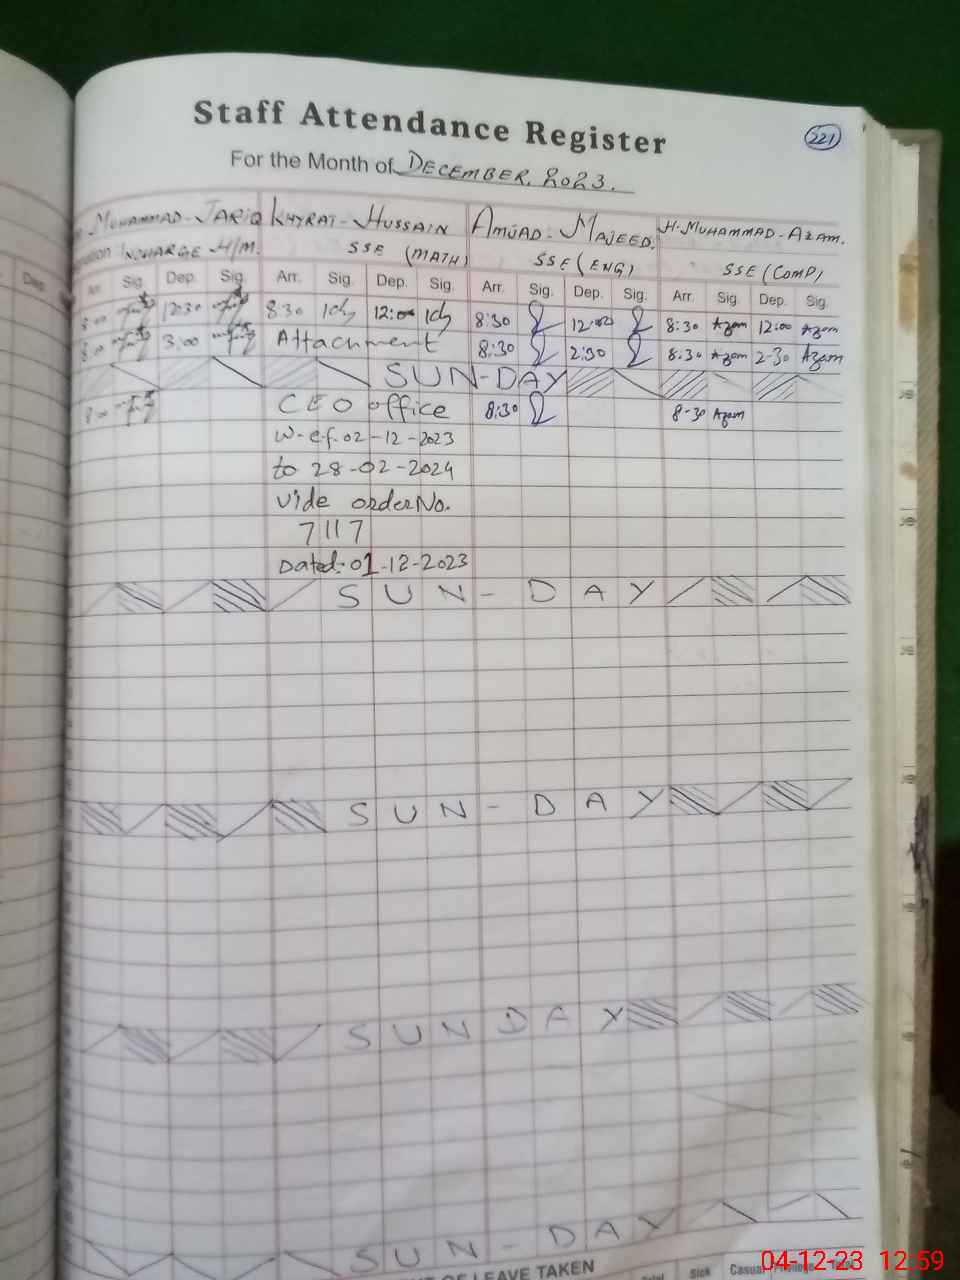 Staff Attendance Register
221
For the Month of DECEMBER, 2023.
MUHAMMAD-TARIQ KHYRAT-HUSSAIN AMJAD-MAJEED. H-MUHAMMAD-AZAM.
INCHARGE H/M. SSE (MATH) SSE (ENG) SSE (COMP)
Dep.
Arr. Sig. Dep. Sig. Arr. Sig. Dep. Sig. Arr. Sig. Dep. Sig. Arr. Sig. Dep. Sig.
8:00 12:30 8:30 12:00 8:30 12:00 8:30 Azam 12:00 Azam
8:00 3:00 Attachment 8:30 2:30 8:30 Azam 2-30 Azam
SUN-DAY
8:00 CEO office 8:30 8-30 Azam
w-e-f-02-12-2023
to 28-02-2024
vide order No.
7117
Dated:-01-12-2023
SUN-DAY
SUN-DAY
SUNDAY
SUN-DAY
OF LEAVE TAKEN
Sick Casual
04-12-23 12:59